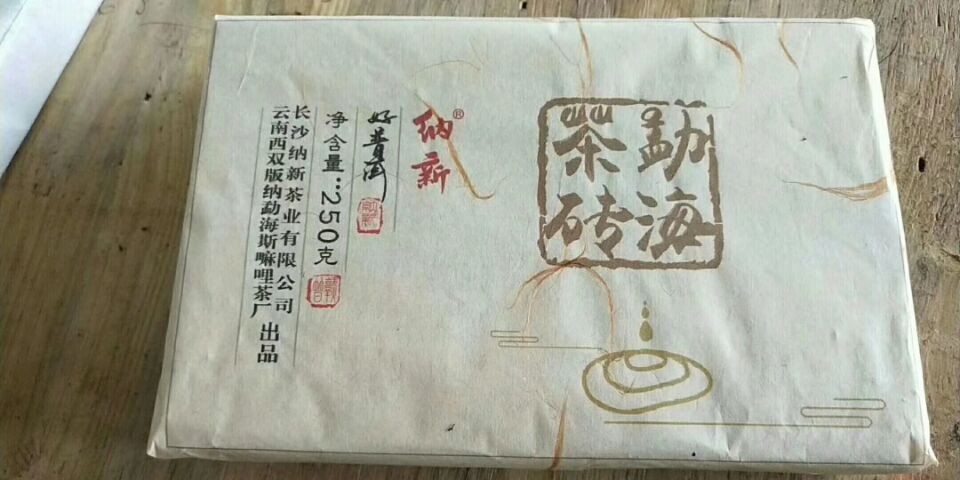 勐海
茶砖
纳新®
好普洱
净含量:250克
长沙纳新茶业有限公司
云南西双版纳勐海斯嘛哩茶厂 出品